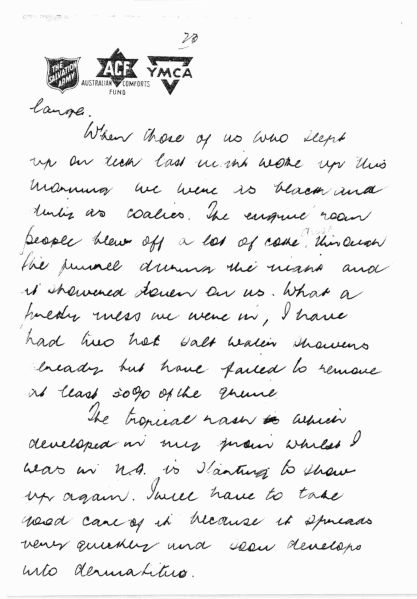 23
THE SALVATION ARMY
ACF
AUSTRALIAN COMFORTS FUND
YMCA
When those of us who slept
up on deck last night woke up this
morning we were as black and
dirty as coalies. The engine room
people blew off a lot of coke through
the funnel during the night and
it showered down on us. What a
pretty mess we were in, I have
had two hot salt water showers
already but have failed to remove
at least 50% of the grime
The tropical rash which
developed in my groin whilst I
was in N.G. is starting to show
up again. I will have to take
good care of it because it spreads
very quickly and soon develops
into dermatitis.